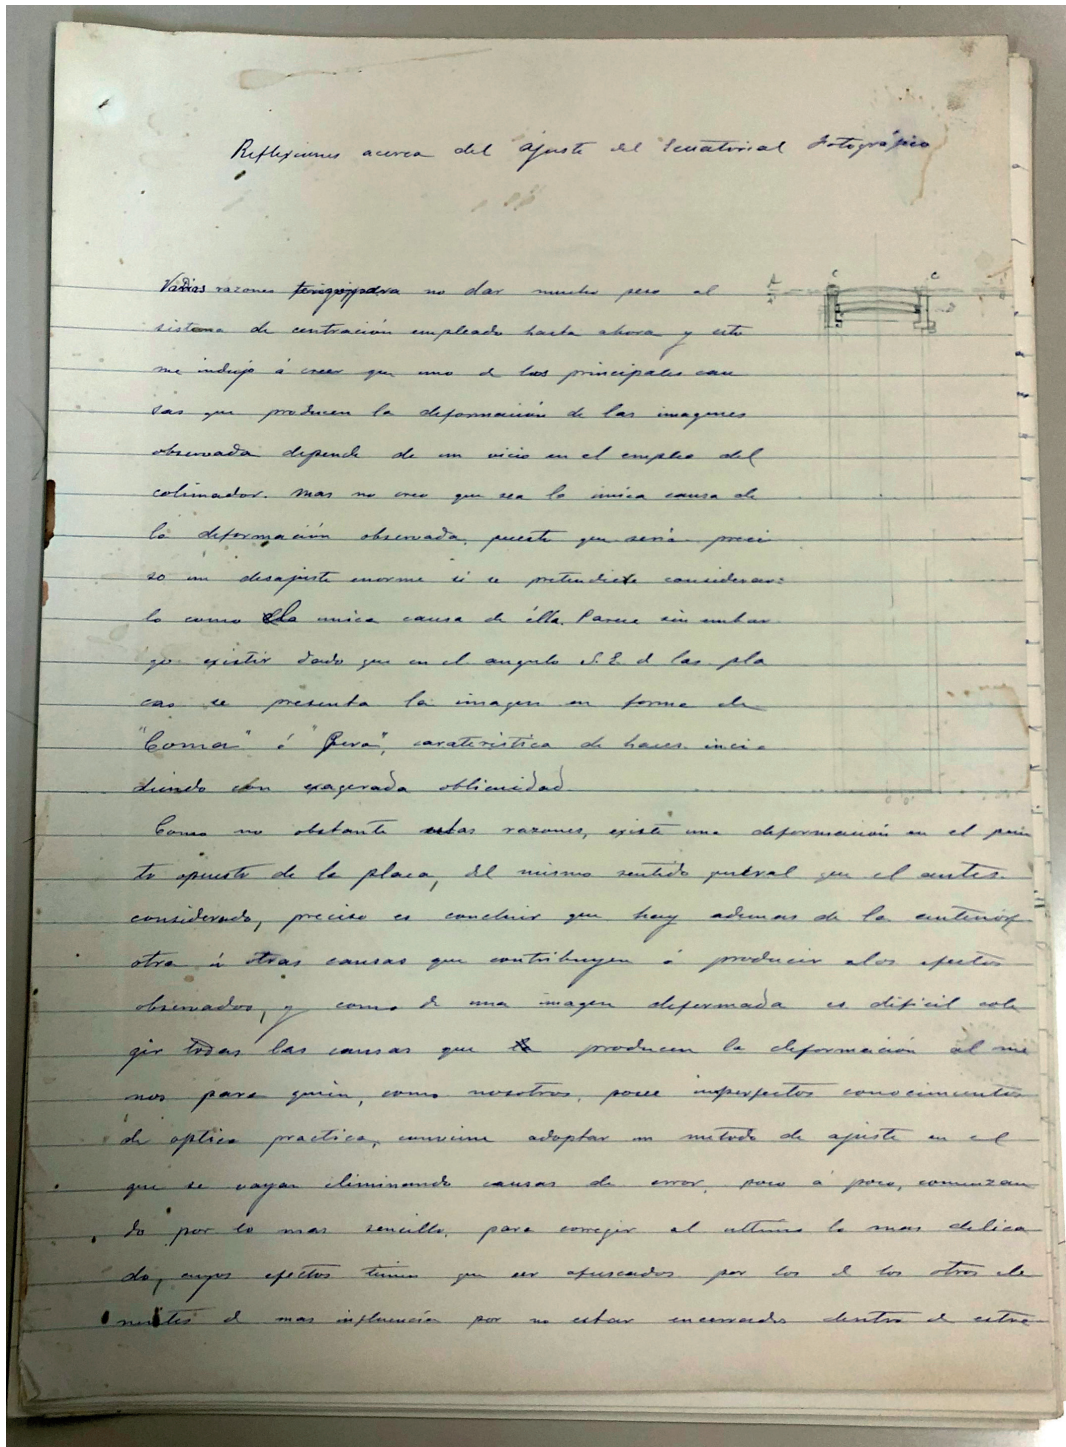 Reflexiones acerca del Ajuste del Ecuatorial Fotográfico
Varias razones tengo para no dar mucho peso al
sistema de centración empleado hasta ahora y esto
me indujo á creer que uno de las principales cau
sas que producen la deformación de las imagenes
observada depende de un vicio en el empleo del
colimador. Mas no creo que sea la única causa de
la deformación observada, puesto que seria preci
so un desajuste enorme si se pretendiese considerar=
lo como la unica causa de élla. Parece sin embar
go existir dado que en el angulo S.E. d las pla
cas se presenta la imagen en forma de
"Coma" ó "Pera", caraterística de haces inci
diendo con exagerada oblicuidad
Como no obstante estas razones, existe una deformación en el pun
to opuesto de la placa, del mismo sentido que el antes
considerado, preciso es concluir que hay ademas de la anterior
otra ú otras causas que contribuyen á producir los efectos
observados, y como de una imagen deformada es dificil cole
gir todas las causas que producen la deformación al me
nos para quien, como nosotros, posee imperfectos conocimientos
de optica practica, conviene adoptar un metodo de ajuste en el
que se vayan eliminando causas de error, poco á poco, comenzan
do por lo mas sencillo, para corregir al ultimo lo mas delica
do, cuyos efectos tienen que ser ofuscados por los d los otros ele
mentos d mas influencia por no estar encerrados dentro d estre
C
C